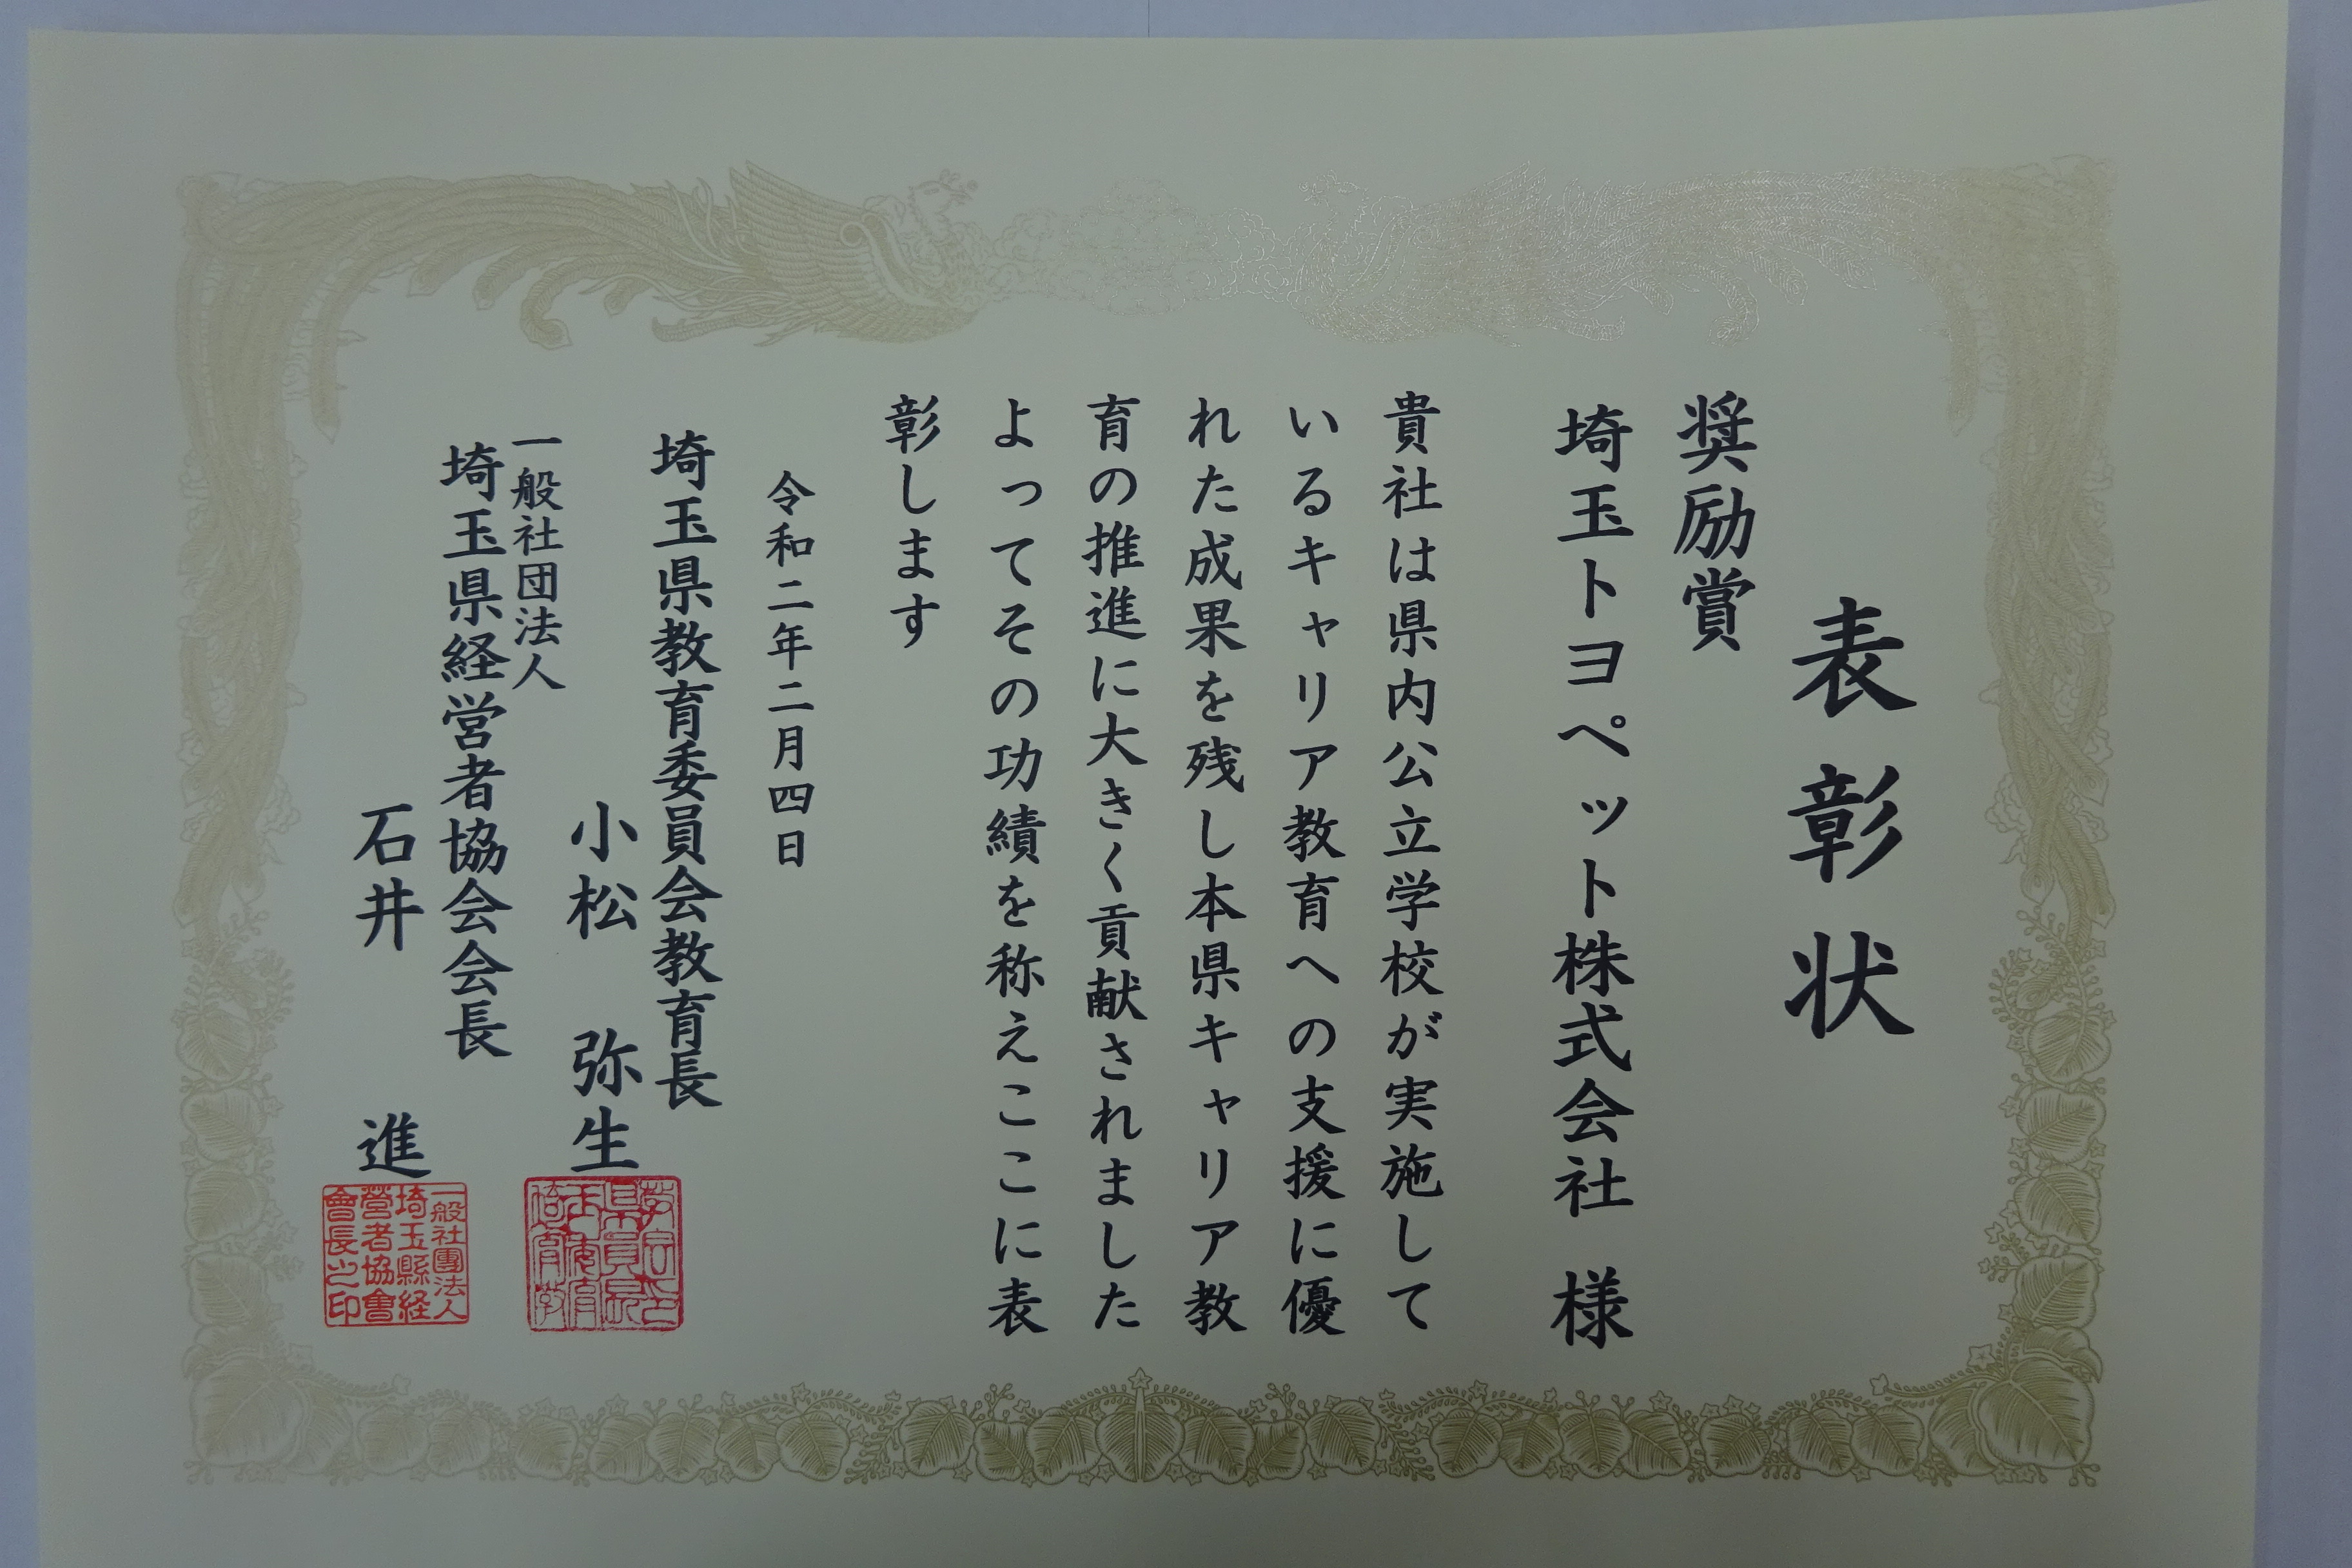 表彰状
奨励賞
埼玉トヨペット株式会社 様
貴社は県内公立学校が実施して
いるキャリア教育への支援に優
れた成果を残し本県キャリア教
育の推進に大きく貢献されました
よってその功績を称えここに表
彰します
令和二年二月四日
埼玉県教育委員会教育長
小松 弥生
一般社団法人
埼玉県経営者協会会長
石井 進
一般社團法人
埼玉縣経
營者協會
會長之印